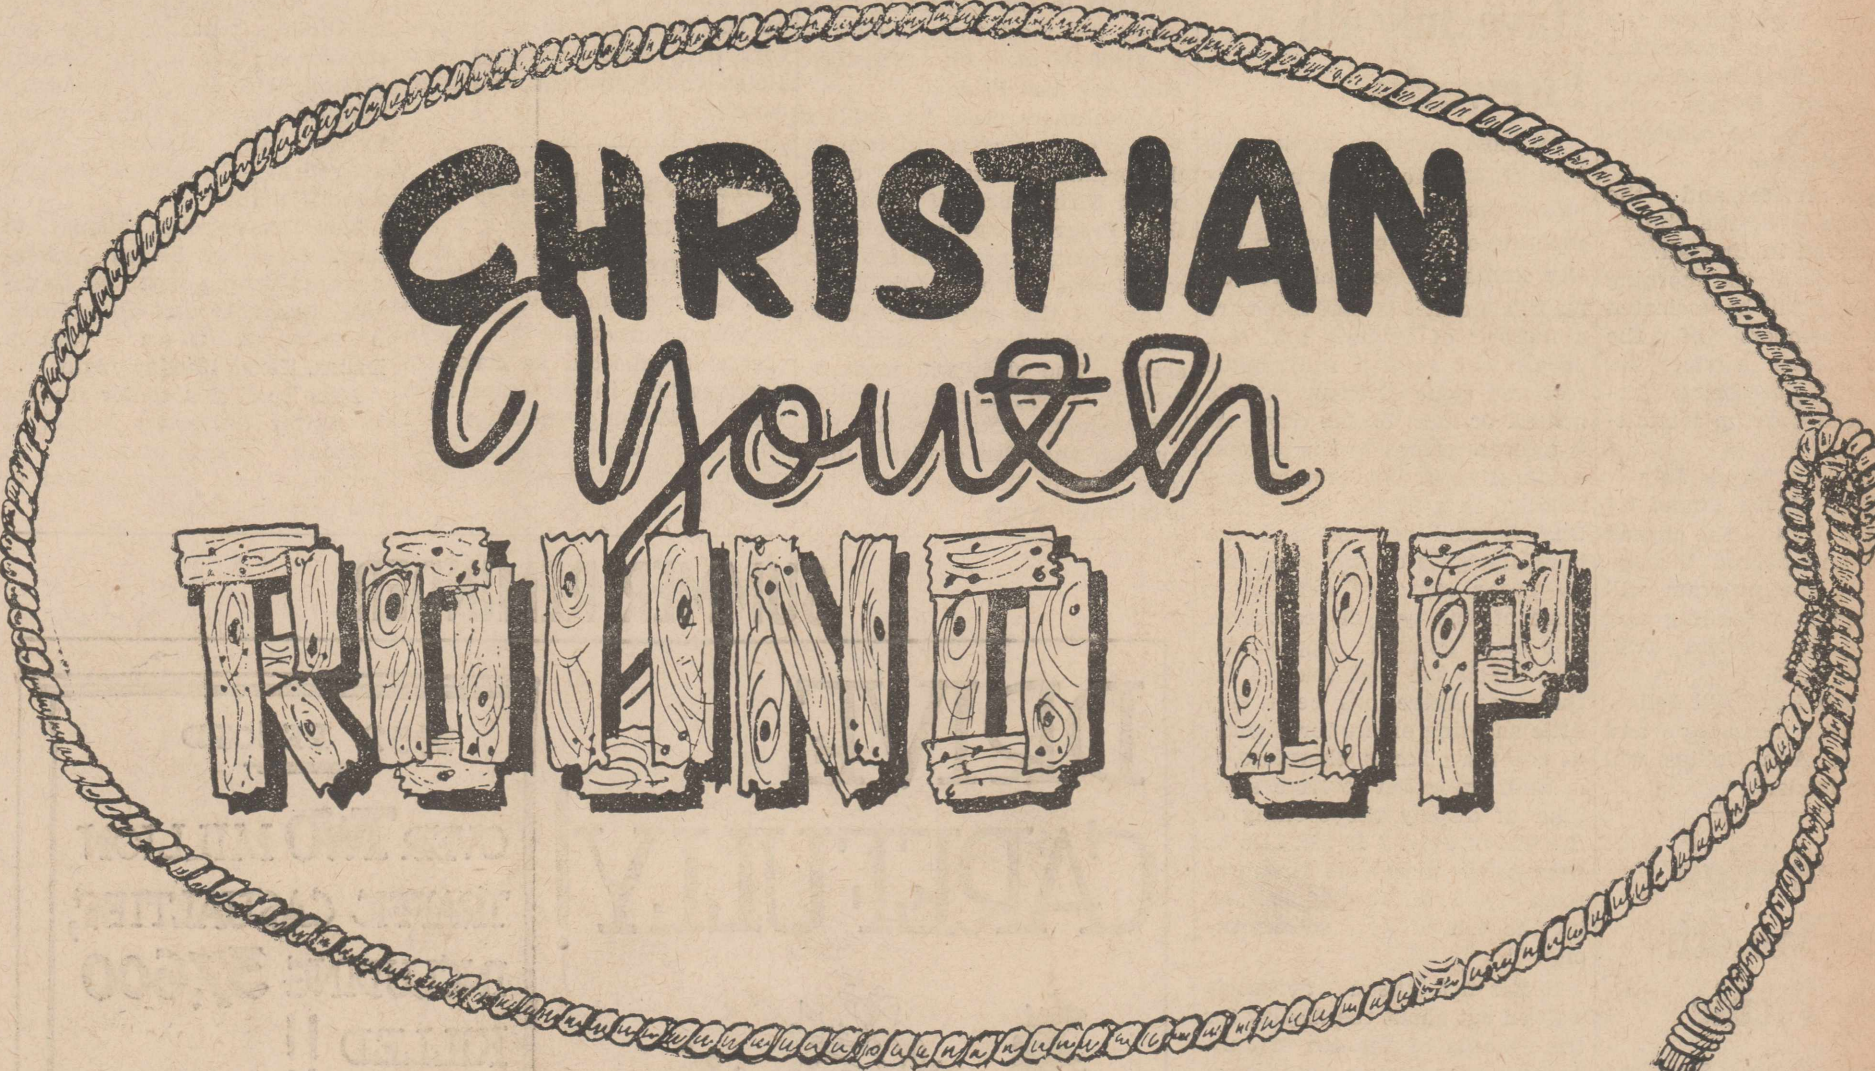 CHRISTIAN
Youth
ROUND UP